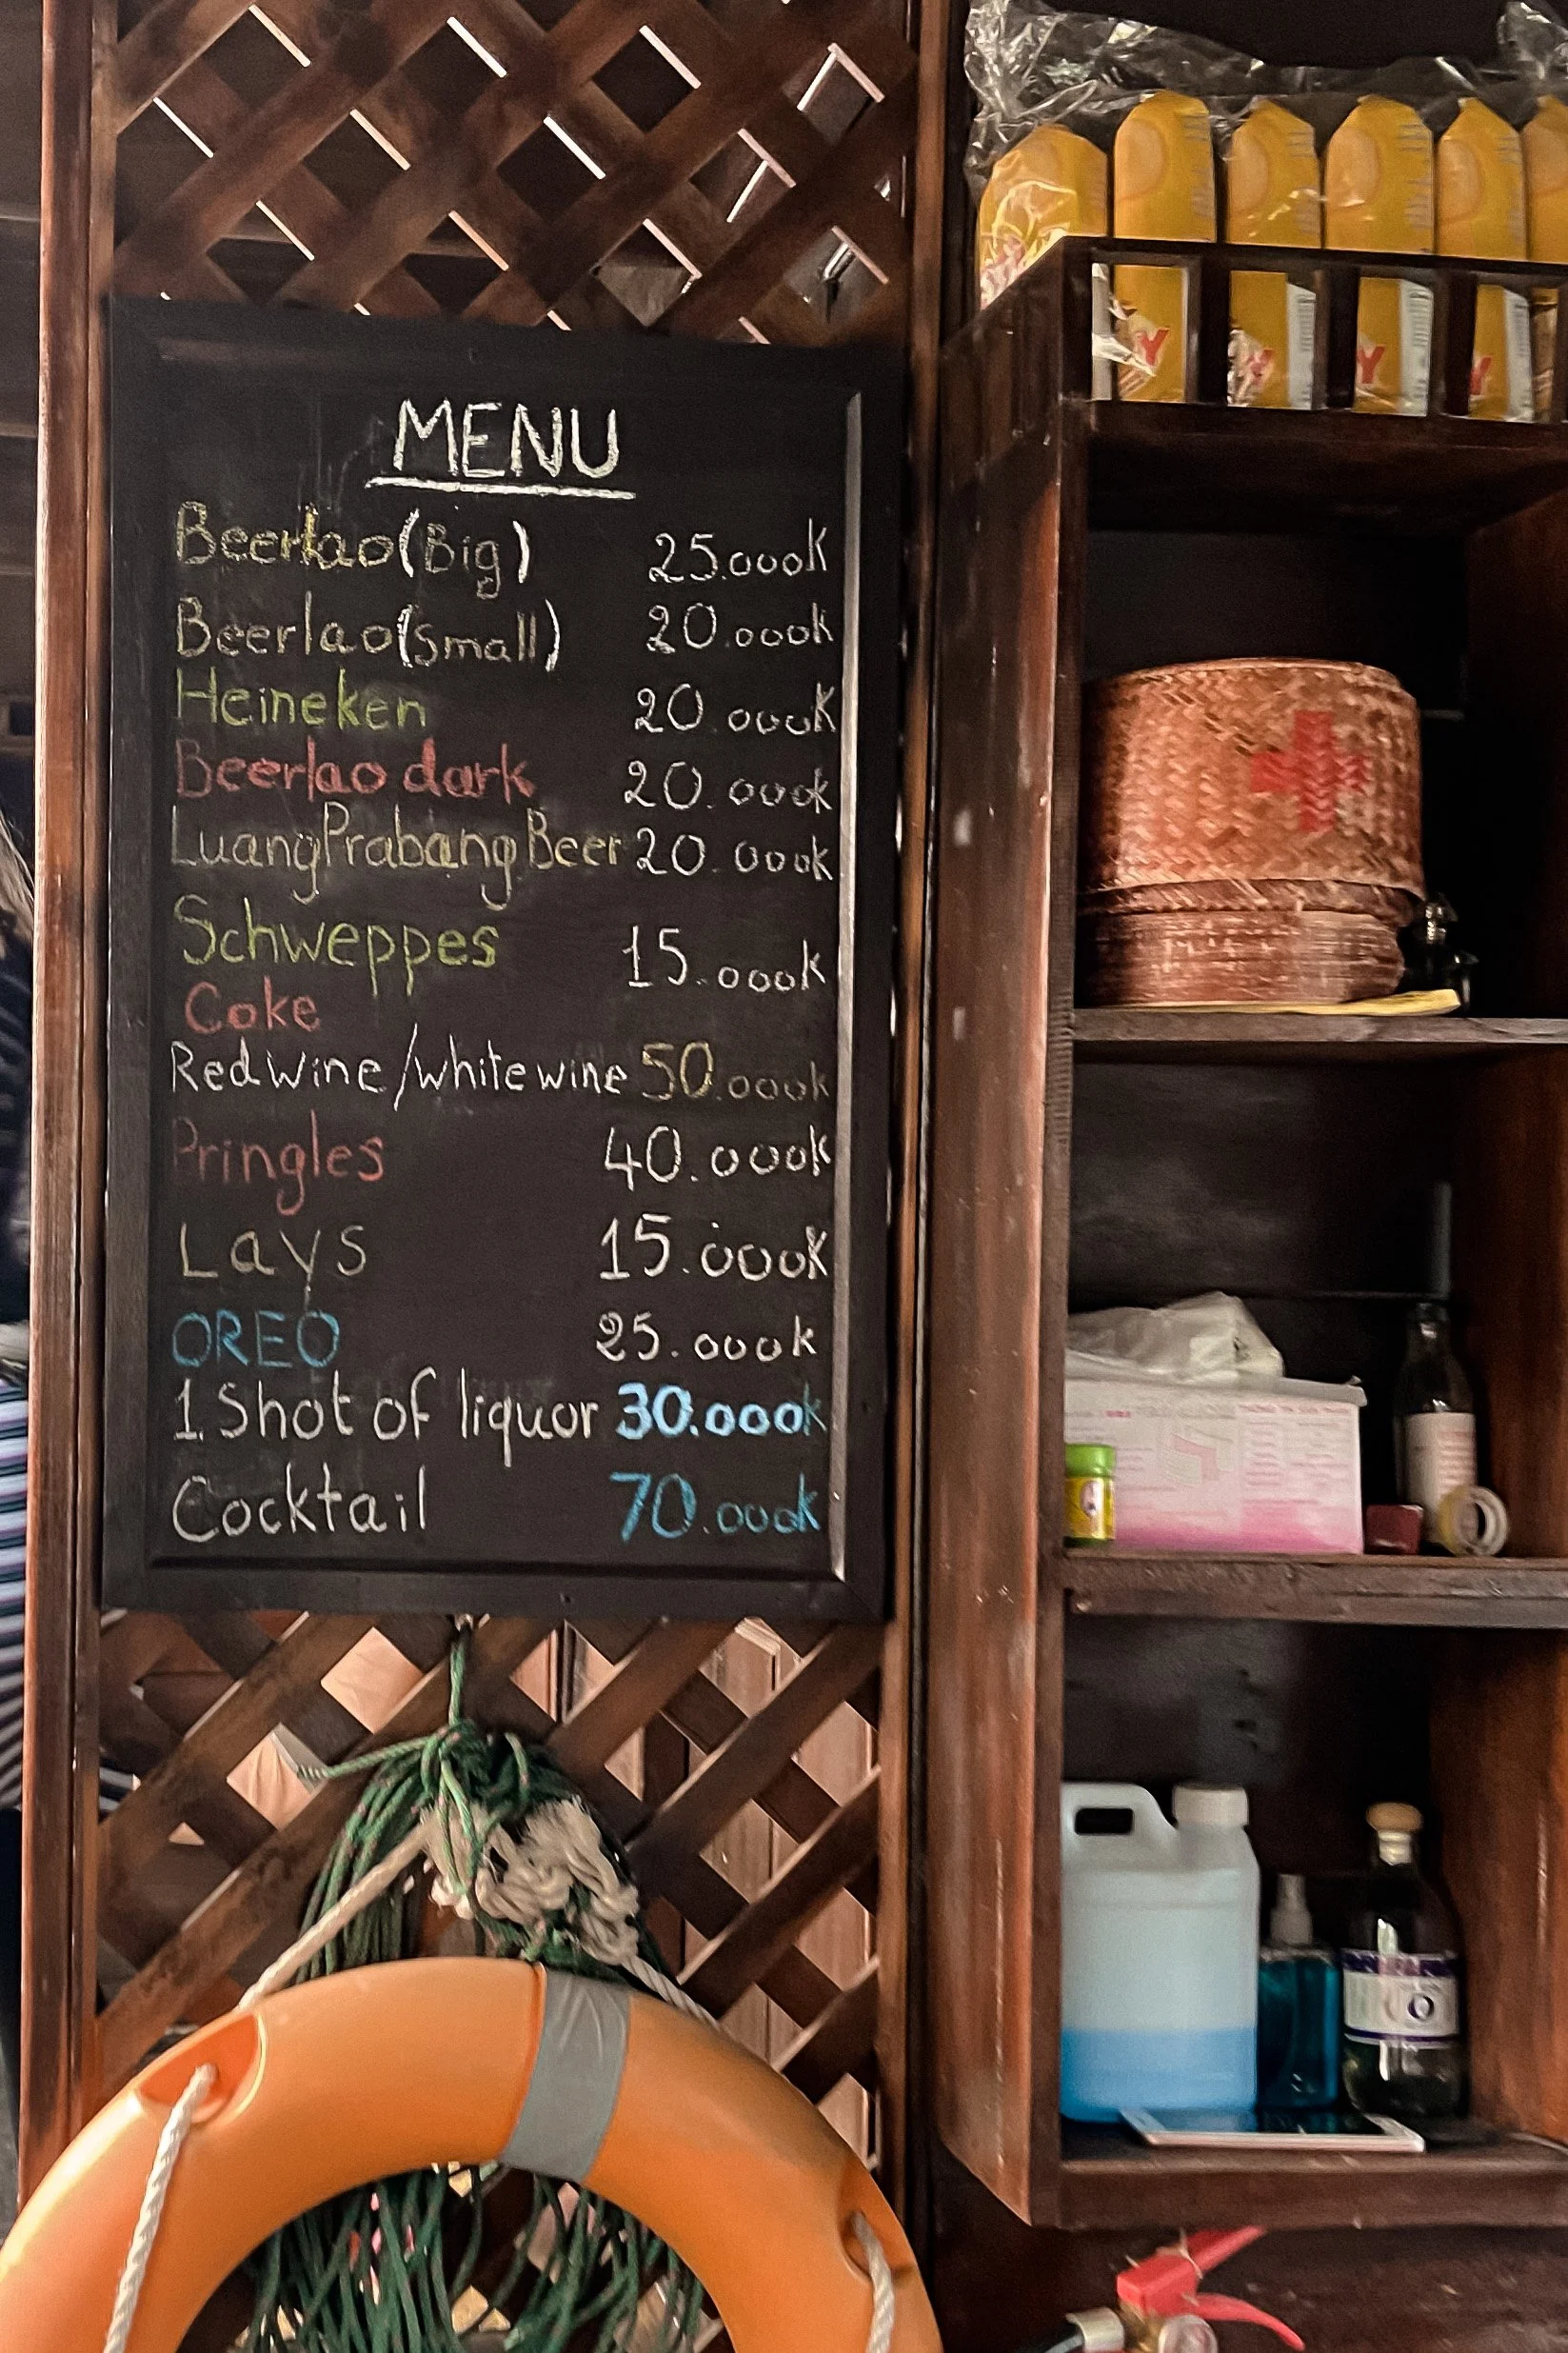 MENU
Beerlao (Big) 25.000K
Beerlao (small) 20.000k
Heineken 20.000K
Beerlao dark 20.000k
LuangPrabang Beer 20.000k
Schweppes 15.000k
Coke
Red wine / white wine 50.000k
Pringles 40.000k
Lays 15.000K
OREO 25.000k
1 Shot of liquor 30.000k
Cocktail 70.000k
Y
Y
Y
Y